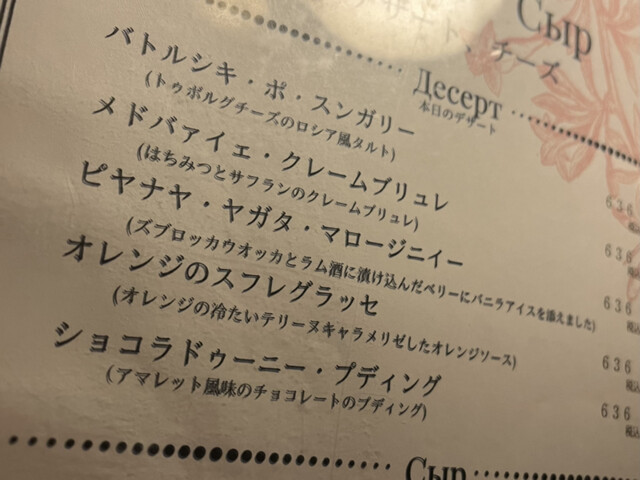 Сыр
デザート、チーズ
Десерт
本日のデザート
バトルシキ・ポ・スンガリー
(トゥポルグチーズのロシア風タルト)
636
税込
メドバァイェ・クレームブリュレ
(はちみつとサフランのクレームブリュレ)
636
税込
ピヤナヤ・ヤガタ・マロージニイー
(ズブロッカウオッカとラム酒に漬け込んだベリーにバニラアイスを添えました)
636
税込
オレンジのスフレグラッセ
(オレンジの冷たいテリーヌキャラメリゼしたオレンジソース)
636
税込
ショコラドゥーニー・プディング
(アマレット風味のチョコレートのプディング)
636
税込
Сыр